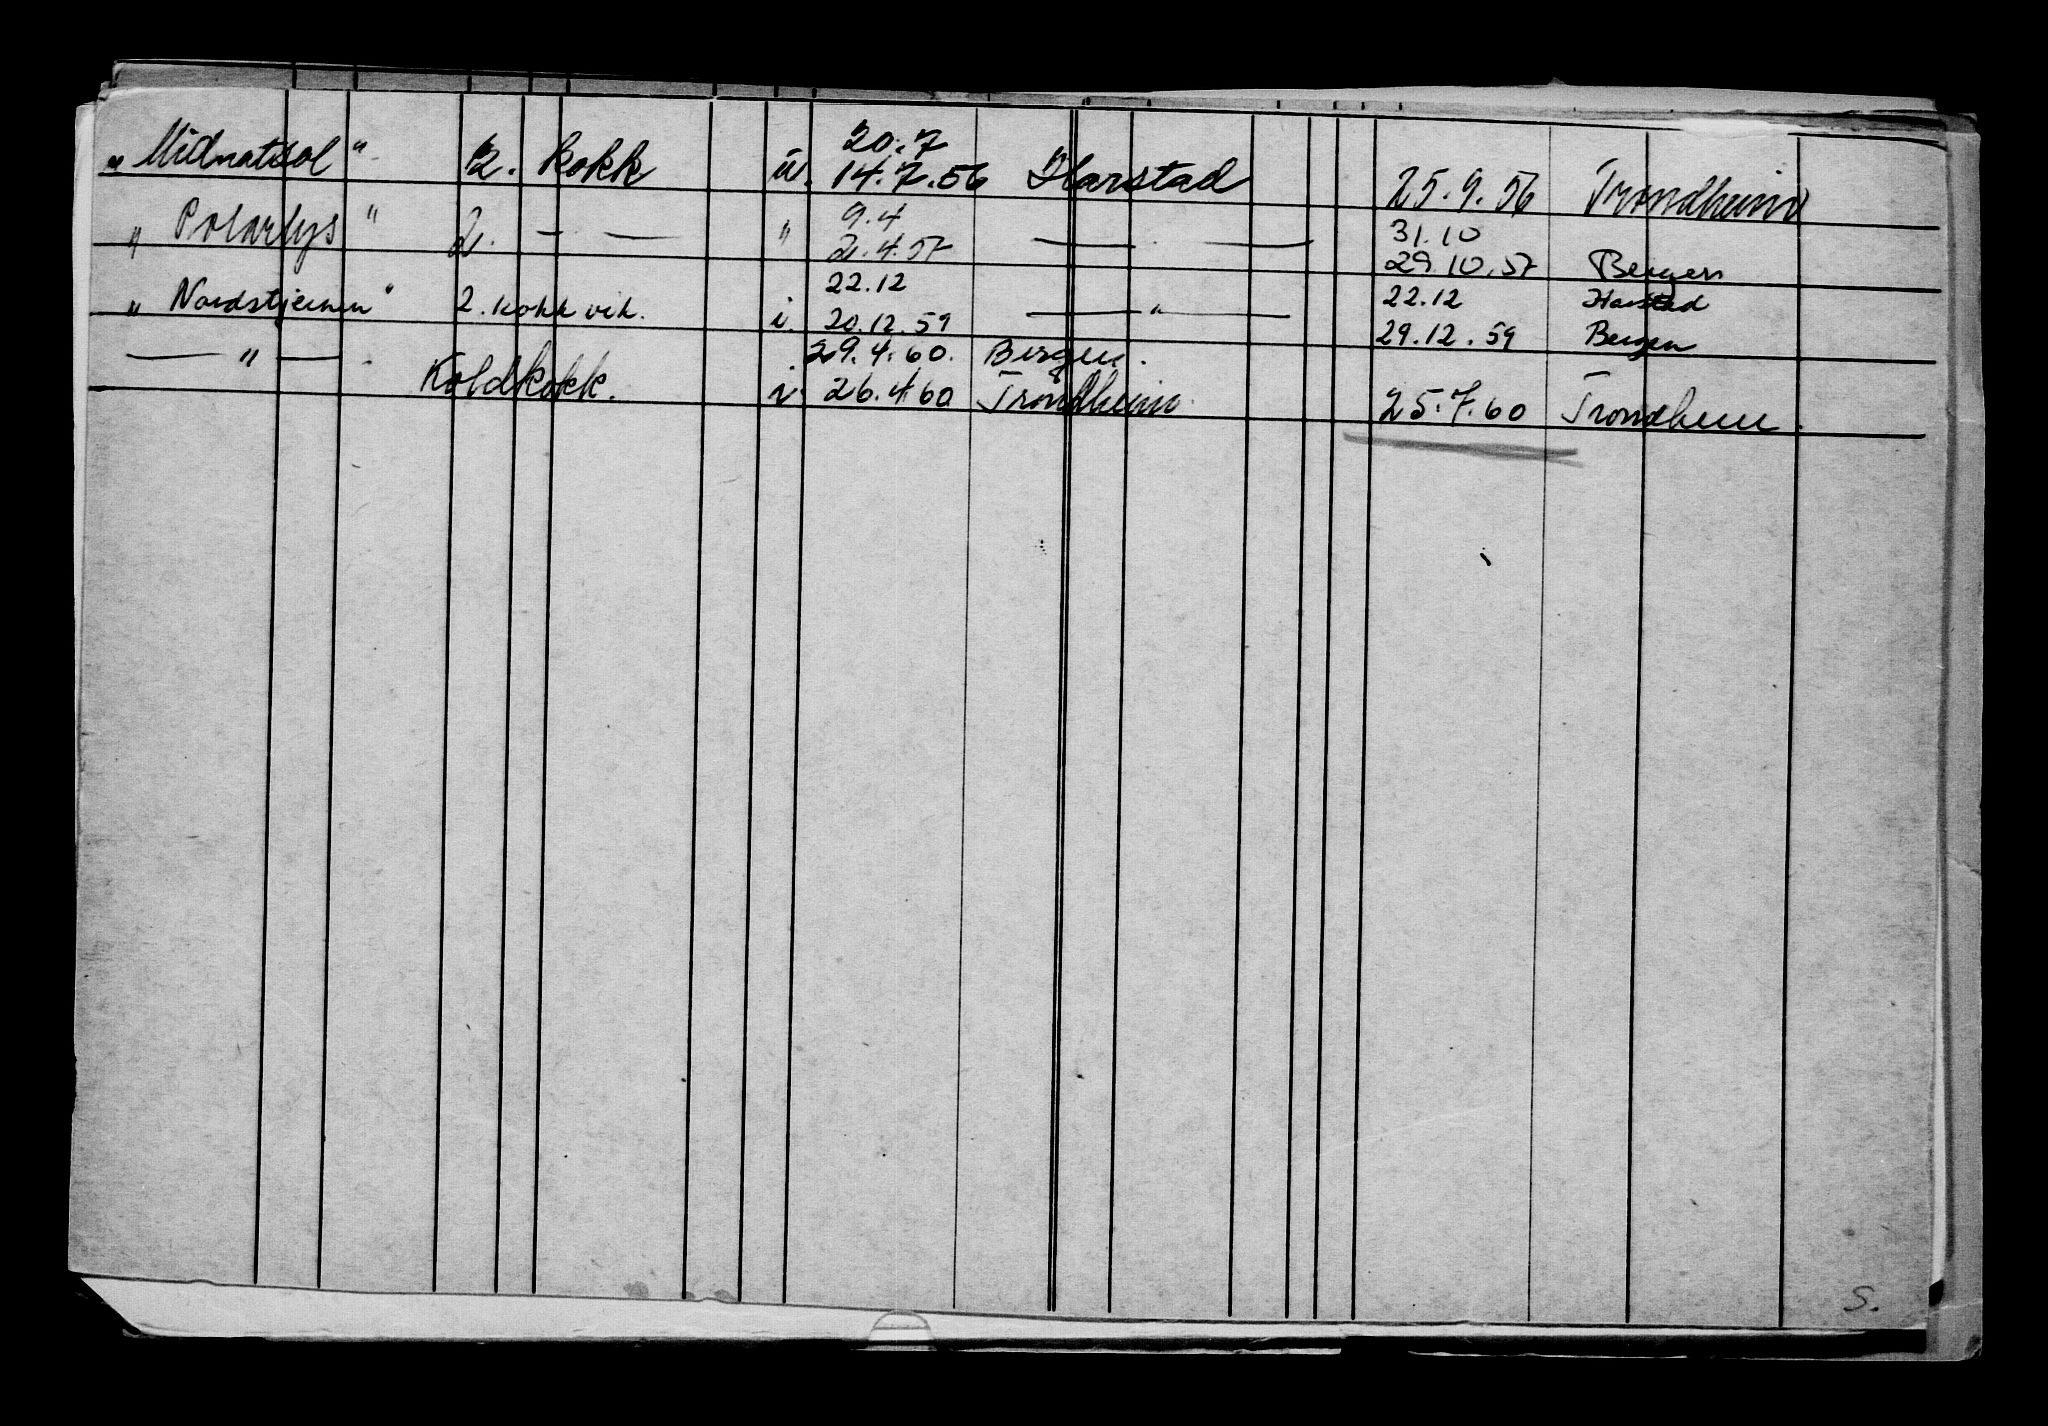 20.7
„Midnatsol" 2. kokk u. 14.7.56 Harstad 25.9.56 Trondheim
9.4 31.10
„Polarlys" 2. — — " 2.4.57 — — 29.10.57 Bergen
22.12 22.12 Harstad
„Nordstjernen" 2. kokk vik. i. 20.12.59 — " — 29.12.59 Bergen
— " — 29.4.60. Bergen.
Koldkokk. i. 26.4.60 Trondheim. 25.7.60 Trondheim.
S.